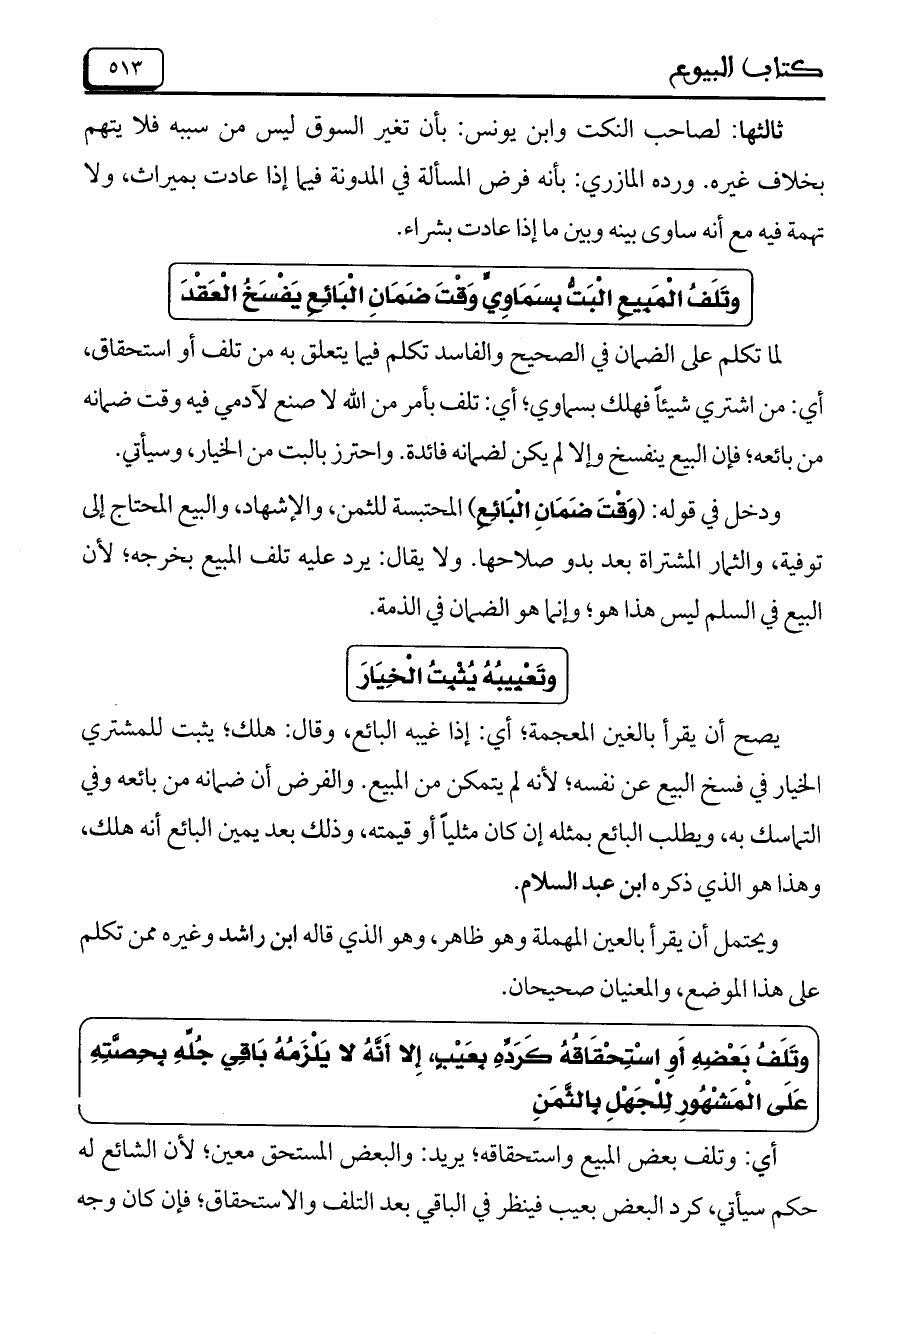 كتاب البيوع
٥١٣
ثالثها: لصاحب النكت وابن يونس: بأن تغير السوق ليس من سببه فلا يتهم
بخلاف غيره. ورده المازري: بأنه فرض المسألة في المدونة فيما إذا عادت بميراث، ولا
تهمة فيه مع أنه ساوى بينه وبين ما إذا عادت بشراء.
وتَلَفُ الْمَبِيعِ الْبَتُّ بِسَمَاوِيٍّ وَقْتَ ضَمَانِ الْبَائِعِ يَفْسَخُ الْعَقْدَ
لما تكلم على الضمان في الصحيح والفاسد تكلم فيما يتعلق به من تلف أو استحقاق،
أي: من اشتري شيئاً فهلك بسماوي؛ أي: تلف بأمر من الله لا صنع لآدمي فيه وقت ضمانه
من بائعه؛ فإن البيع ينفسخ وإلا لم يكن لضمانه فائدة. واحترز بالبت من الخيار، وسيأتي.
ودخل في قوله: (وَقْتَ ضَمَانِ الْبَائِعِ) المحتبسة للثمن، والإشهاد، والبيع المحتاج إلى
توفية، والثمار المشتراة بعد بدو صلاحها. ولا يقال: يرد عليه تلف المبيع بخرجه؛ لأن
البيع في السلم ليس هذا هو؛ وإنما هو الضمان في الذمة.
وتَعْيِيبُهُ يُثْبِتُ الْخِيَارَ
يصح أن يقرأ بالغين المعجمة؛ أي: إذا غيبه البائع، وقال: هلك؛ يثبت للمشتري
الخيار في فسخ البيع عن نفسه؛ لأنه لم يتمكن من المبيع. والفرض أن ضمانه من بائعه وفي
التماسك به، ويطلب البائع بمثله إن كان مثلياً أو قيمته، وذلك بعد يمين البائع أنه هلك،
وهذا هو الذي ذكره ابن عبد السلام.
ويحتمل أن يقرأ بالعين المهملة وهو ظاهر، وهو الذي قاله ابن راشد وغيره ممن تكلم
على هذا الموضع، والمعنيان صحيحان.
وتَلَفُ بَعْضِهِ أَوِ اسْتِحْقَاقُهُ كَرَدِّهِ بِعَيْبٍ، إِلا أَنَّهُ لا يَلْزَمُهُ بَاقِي جُلِّهِ بِحِصَّتِهِ
عَلَى الْمَشْهُورِ لِلْجَهْلِ بِالثَّمَنِ
أي: وتلف بعض المبيع واستحقاقه؛ يريد: والبعض المستحق معين؛ لأن الشائع له
حكم سيأتي، كرد البعض بعيب فينظر في الباقي بعد التلف والاستحقاق؛ فإن كان وجه